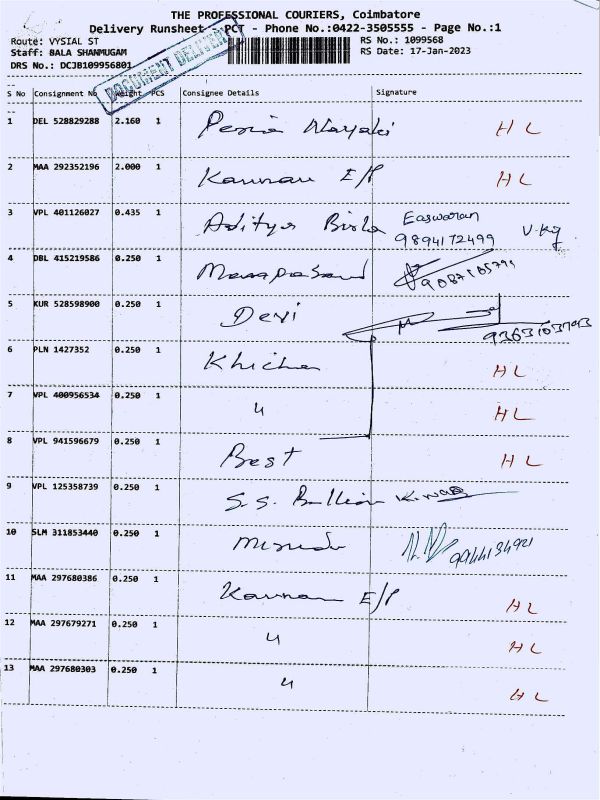 THE PROFESSIONAL COURIERS, Coimbatore
Delivery Runsheet - PCT - Phone No.:0422-3505555 - Page No.:1
Route: VYSIAL ST RS No.: 1099568
Staff: BALA SHANMUGAM RS Date: 17-Jan-2023
DRS No.: DCJB109956801
DOCUMENT DELIVERY
S No Consignment No Weight PCS Consignee Details Signature
1 DEL 528829288 2.160 1 Peria Nayaki H L
2 MAA 292352196 2.000 1 Kannan E/P H L
3 VPL 401126027 0.435 1 Aditya Birla Easwaran V.Kg
9894172499
4 DBL 415219586 0.250 1
5 KUR 528598900 0.250 1 Devi
6 PLN 1427352 0.250 1 H L
7 VPL 400956534 0.250 1  4 H L
8 VPL 941596679 0.250 1 Best H L
9 VPL 125358739 0.250 1 S.S. Bullion
10 SLM 311853440 0.250 1
11 MAA 297680386 0.250 1 Kannan E/P H L
12 MAA 297679271 0.250 1 4 H L
13 MAA 297680303 0.250 1 4 H L